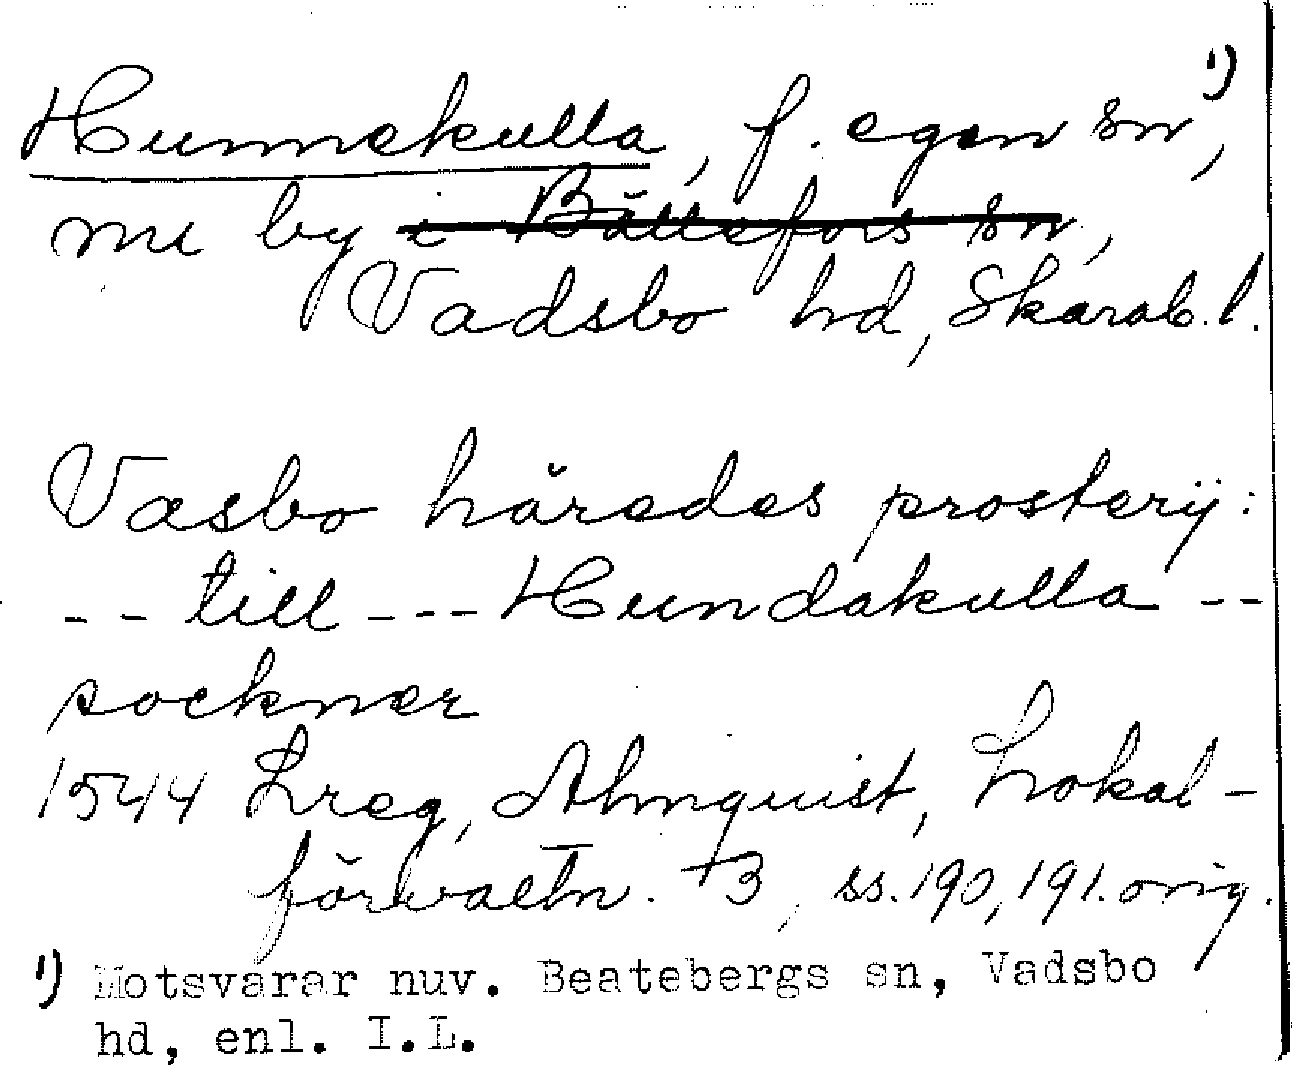 Hunnekulla, f. egen sn ¹),
nu by i Bällefors sn,
Vadsbo hd, Skarab. l.
Vasbo härades prosterij:
-- till --- Hundakulla --
socknær
1544 Lreg, Almquist, Lokal-
förvaltn. 3, ss. 190, 191. orig.
¹) Motsvarar nuv. Beatebergs sn, Vadsbo
hd, enl. I.L.